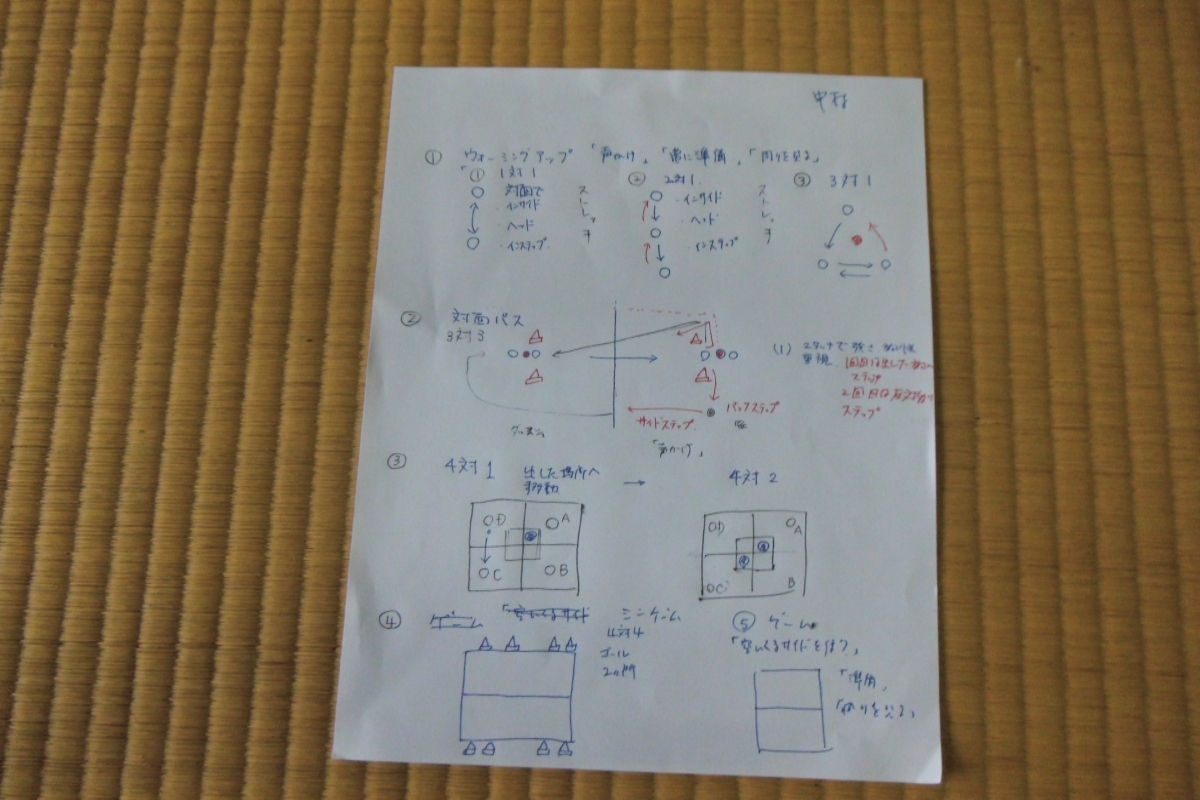 中村
① ウォーミングアップ 「声かけ」 「常に準備」 「周りを見る」
① 1対1
対面で
・インサイド
・ヘッド
・インステップ
ストレッチ
② 2対1
・インサイド
・ヘッド
・インステップ
ストレッチ
③ 3対1
② 対面パス
3対3
(1) 2タッチで強さ
重視
1回目は出した方向へ
ステップ
2回目は反対方向で
ステップ
バックステップ
サイドステップ
「声かけ」
③ 4対1 出した場所へ
移動
→ 4対2
D A
C B
D A
C B
④ ゲーム 「空いてるサイド ミニゲーム
4対4
ゴール
2ヵ所
⑤ ゲーム
「空いてるサイドを使う」
「準備」
「周りを見る」